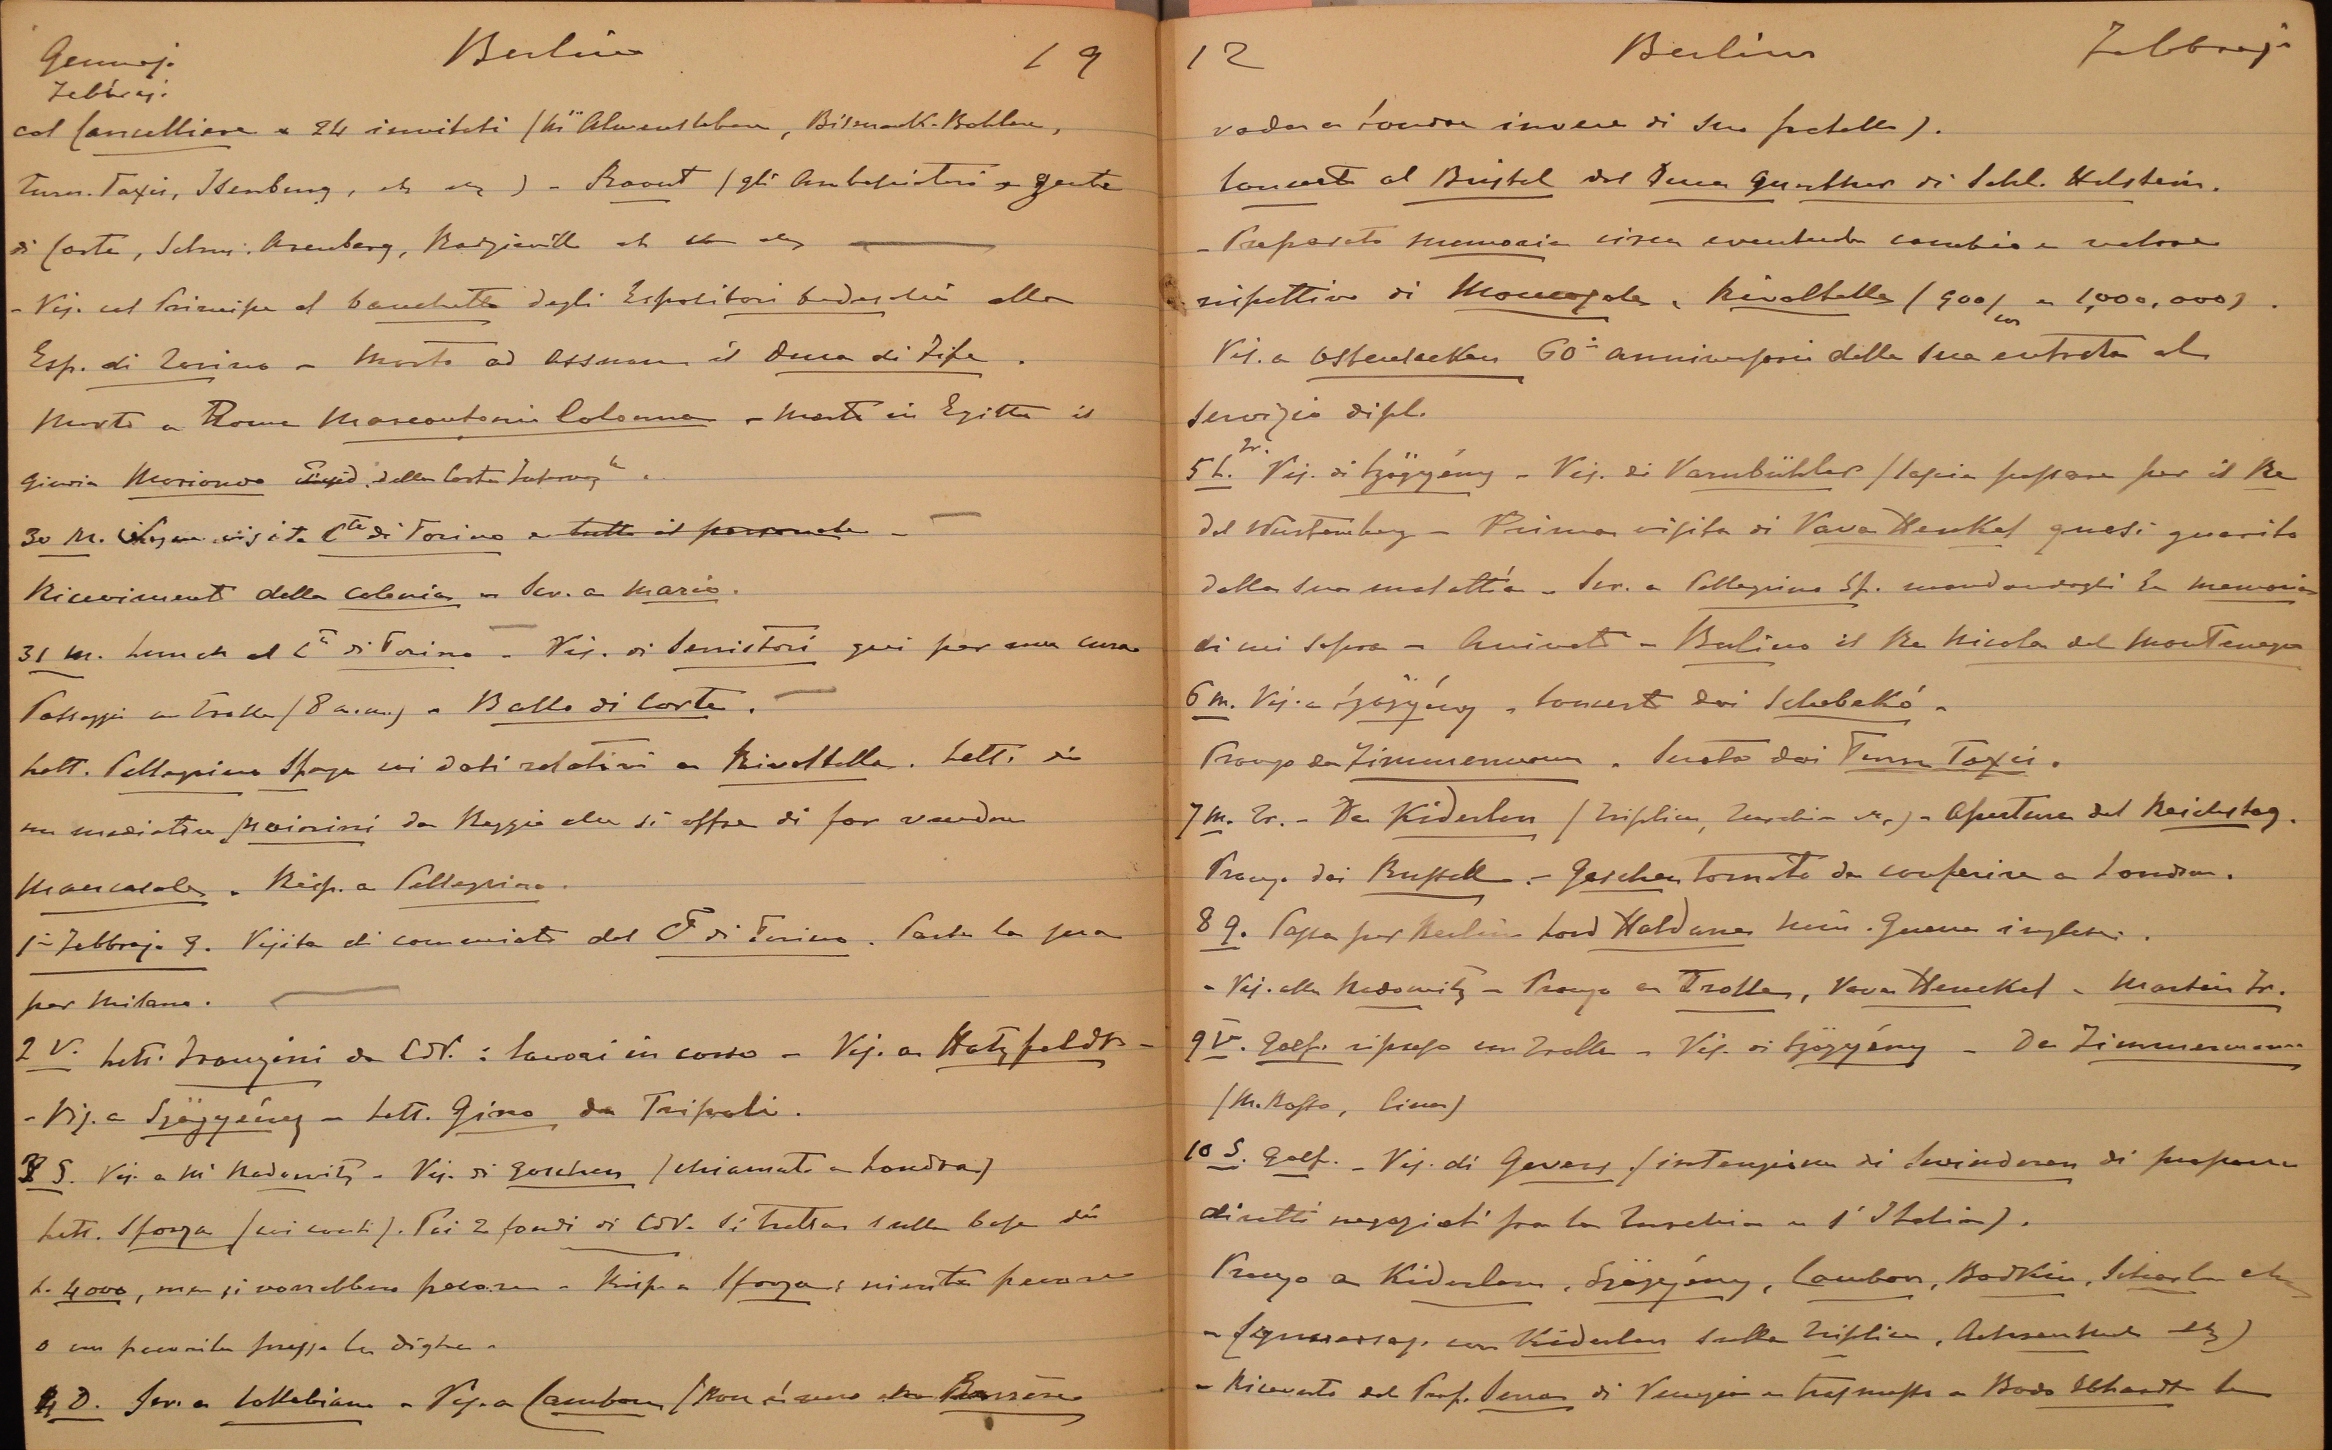 Gennajo Berlino 19
Febbrajo
col Cancelliere e 24 invitati (Mi Alvensleben, Bismark-Bohlen,
Turn-Taxis, Isenburg, etc etc) - Raout (gli Ambasciatori e gente
di Corte, Arenberg, Radziwill etc etc etc
- Vis. col Principe al banchetto degli Espositori tedeschi alla
Esp. di Torino - Morto ad Assuan il Duca di Fife.
Morto a Roma Marcantonio Colonna - Morto in Egitto il
Moriondo della Corte
30 M. visita Cte di Torino e tutto il personale -
Ricevimento della colonia - Scr. a Mario.
31 M. Lunch al Cte di Torino - Vis. di Serristori qui per una cura
Passeggio con Trolle (8 a.m.) - Ballo di Corte.
Lett. Pellegrino Spaga coi dati relativi a Rivaltella. Lett. di
un mediatore da Reggio che si offre di far vendere
Mancasale - Risp. a Pellegrino.
1° Febbrajo G. Visita di commiato del Cte di Torino. Parte la sera
per Milano.
2 V. Lett. Franzini da CdV.: lavori in corso - Vis. a Hatzfeldt -
- Vis. a Szögyény - Lett. Gino da Tripoli.
3 S. Vis. a Mi Radowitz - Vis. di Goschen (chiamato a Londra)
Lett. Sforza (coi conti). Pei 2 fondi di CdV. si tratta sulla base di
L. 4000, ma si vorrebbero pecore - Risp. a Sforza: niente pecore
o un pecorile presso la diga -
4 D. Scr. a - Vis. a Cambon (Non è vero che Barrère
12 Berlino Febbrajo
vada a Londra invece di suo fratello).
Concerto al Bristol del Duca Gunther di Schl. Holstein.
- Preparato memoria circa eventuale cambio e valore
rispettivo di Mancasale e Rivaltella (900/m e 1,000,000).
Vis. a Ostensacken 60° anniversario della sua entrata al
servizio dipl.
5 L. Tr. Vis. di Szögyény - Vis. di Varnbühler (lascia passare per il Re
del Würtemberg - Prima visita di Vava Henkel quasi guarito
dalla sua malattia - Scr. a Pellegrino Sp. mandandogli la memoria
di cui sopra - Arrivato a Berlino il Re Nicola del Montenegro
6 M. Vis. a Szögyény - Concerto dai Schebekó -
Pranzo da Zimmermann - Serata dai Turn Taxis.
7 M. Tr. - Da Kiderlen (Triplice, Turchia etc.) - Apertura del Reichstag.
Pranzo dai Russell - Goschen tornato da conferire a Londra.
8 G. Passa per Berlino Lord Haldane Min. Guerra inglese.
- Vis. alla Radowitz - Pranzo a Trolle, Vava Henckel - Martin Fr.
9 V. Golf. ripreso con Trolle - Vis. di Szögyény - Da Zimmermann
(M. Rosso, Cina)
10 S. Golf. - Vis. di Gevers (intenzione di Swinderen di proporre
diretti negoziati fra la Turchia e l'Italia).
Pranzo a Kiderlen, Szögyény, Cambon, Bodkin, etc
- (con Kiderlen sulla Triplice, etc)
- Ricevuto dal Prof. Serra di Venezia e trasmesso a Bodo Ebhardt la